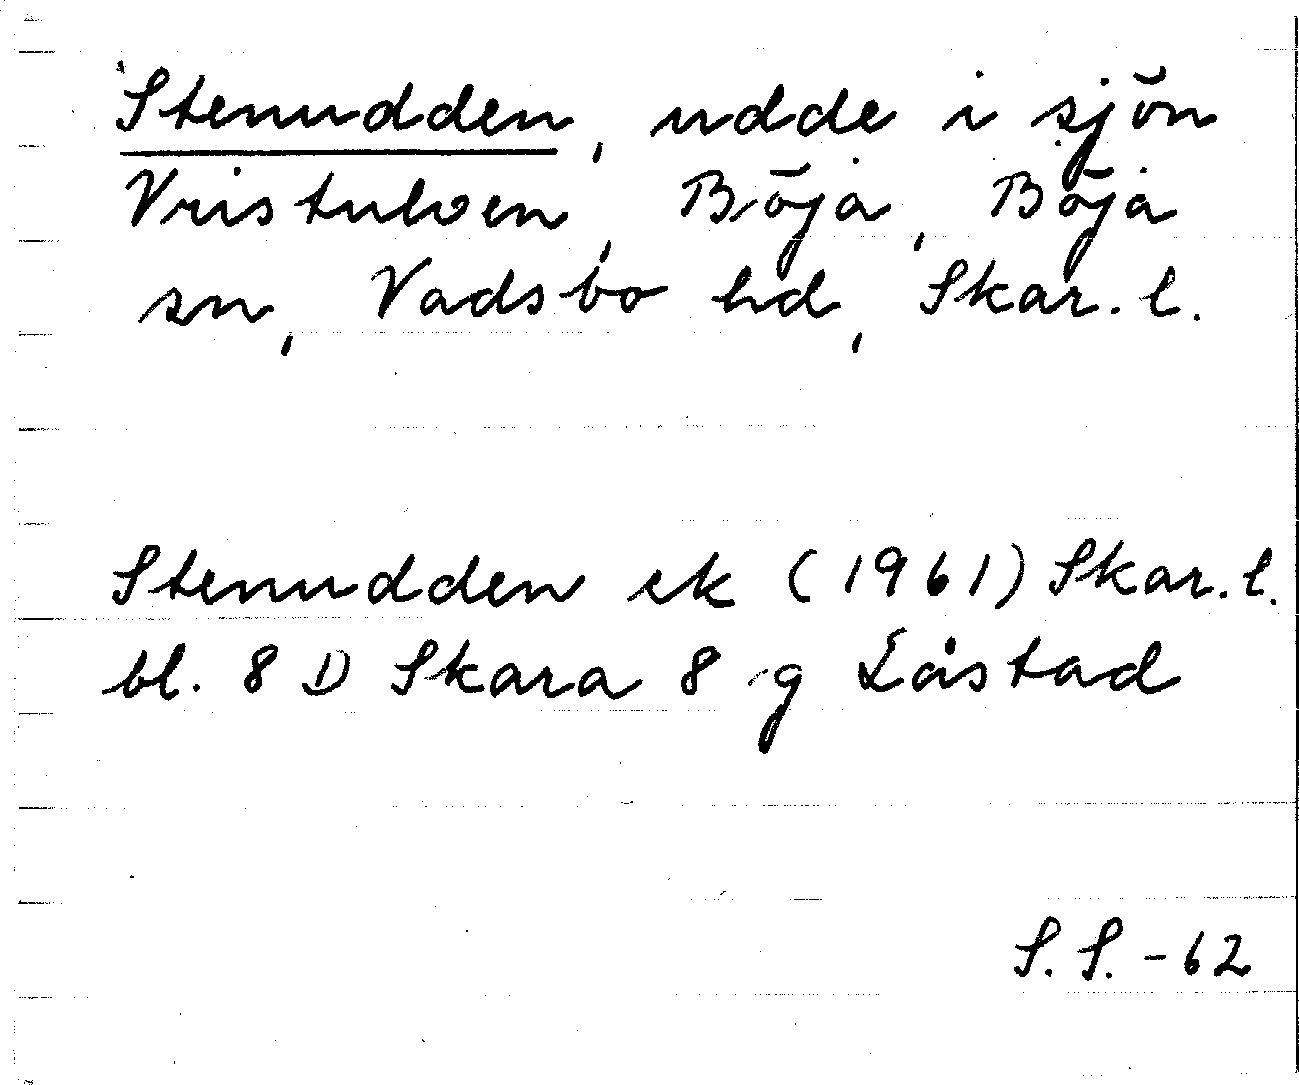 Stenudden, udde i sjön
Vristulven, Böja, Böja
sn, Vadsbo hd, Skar. l.
Stenudden ek (1961) Skar. l.
bl. 8 D Skara 8 g Låstad
S. S. -62